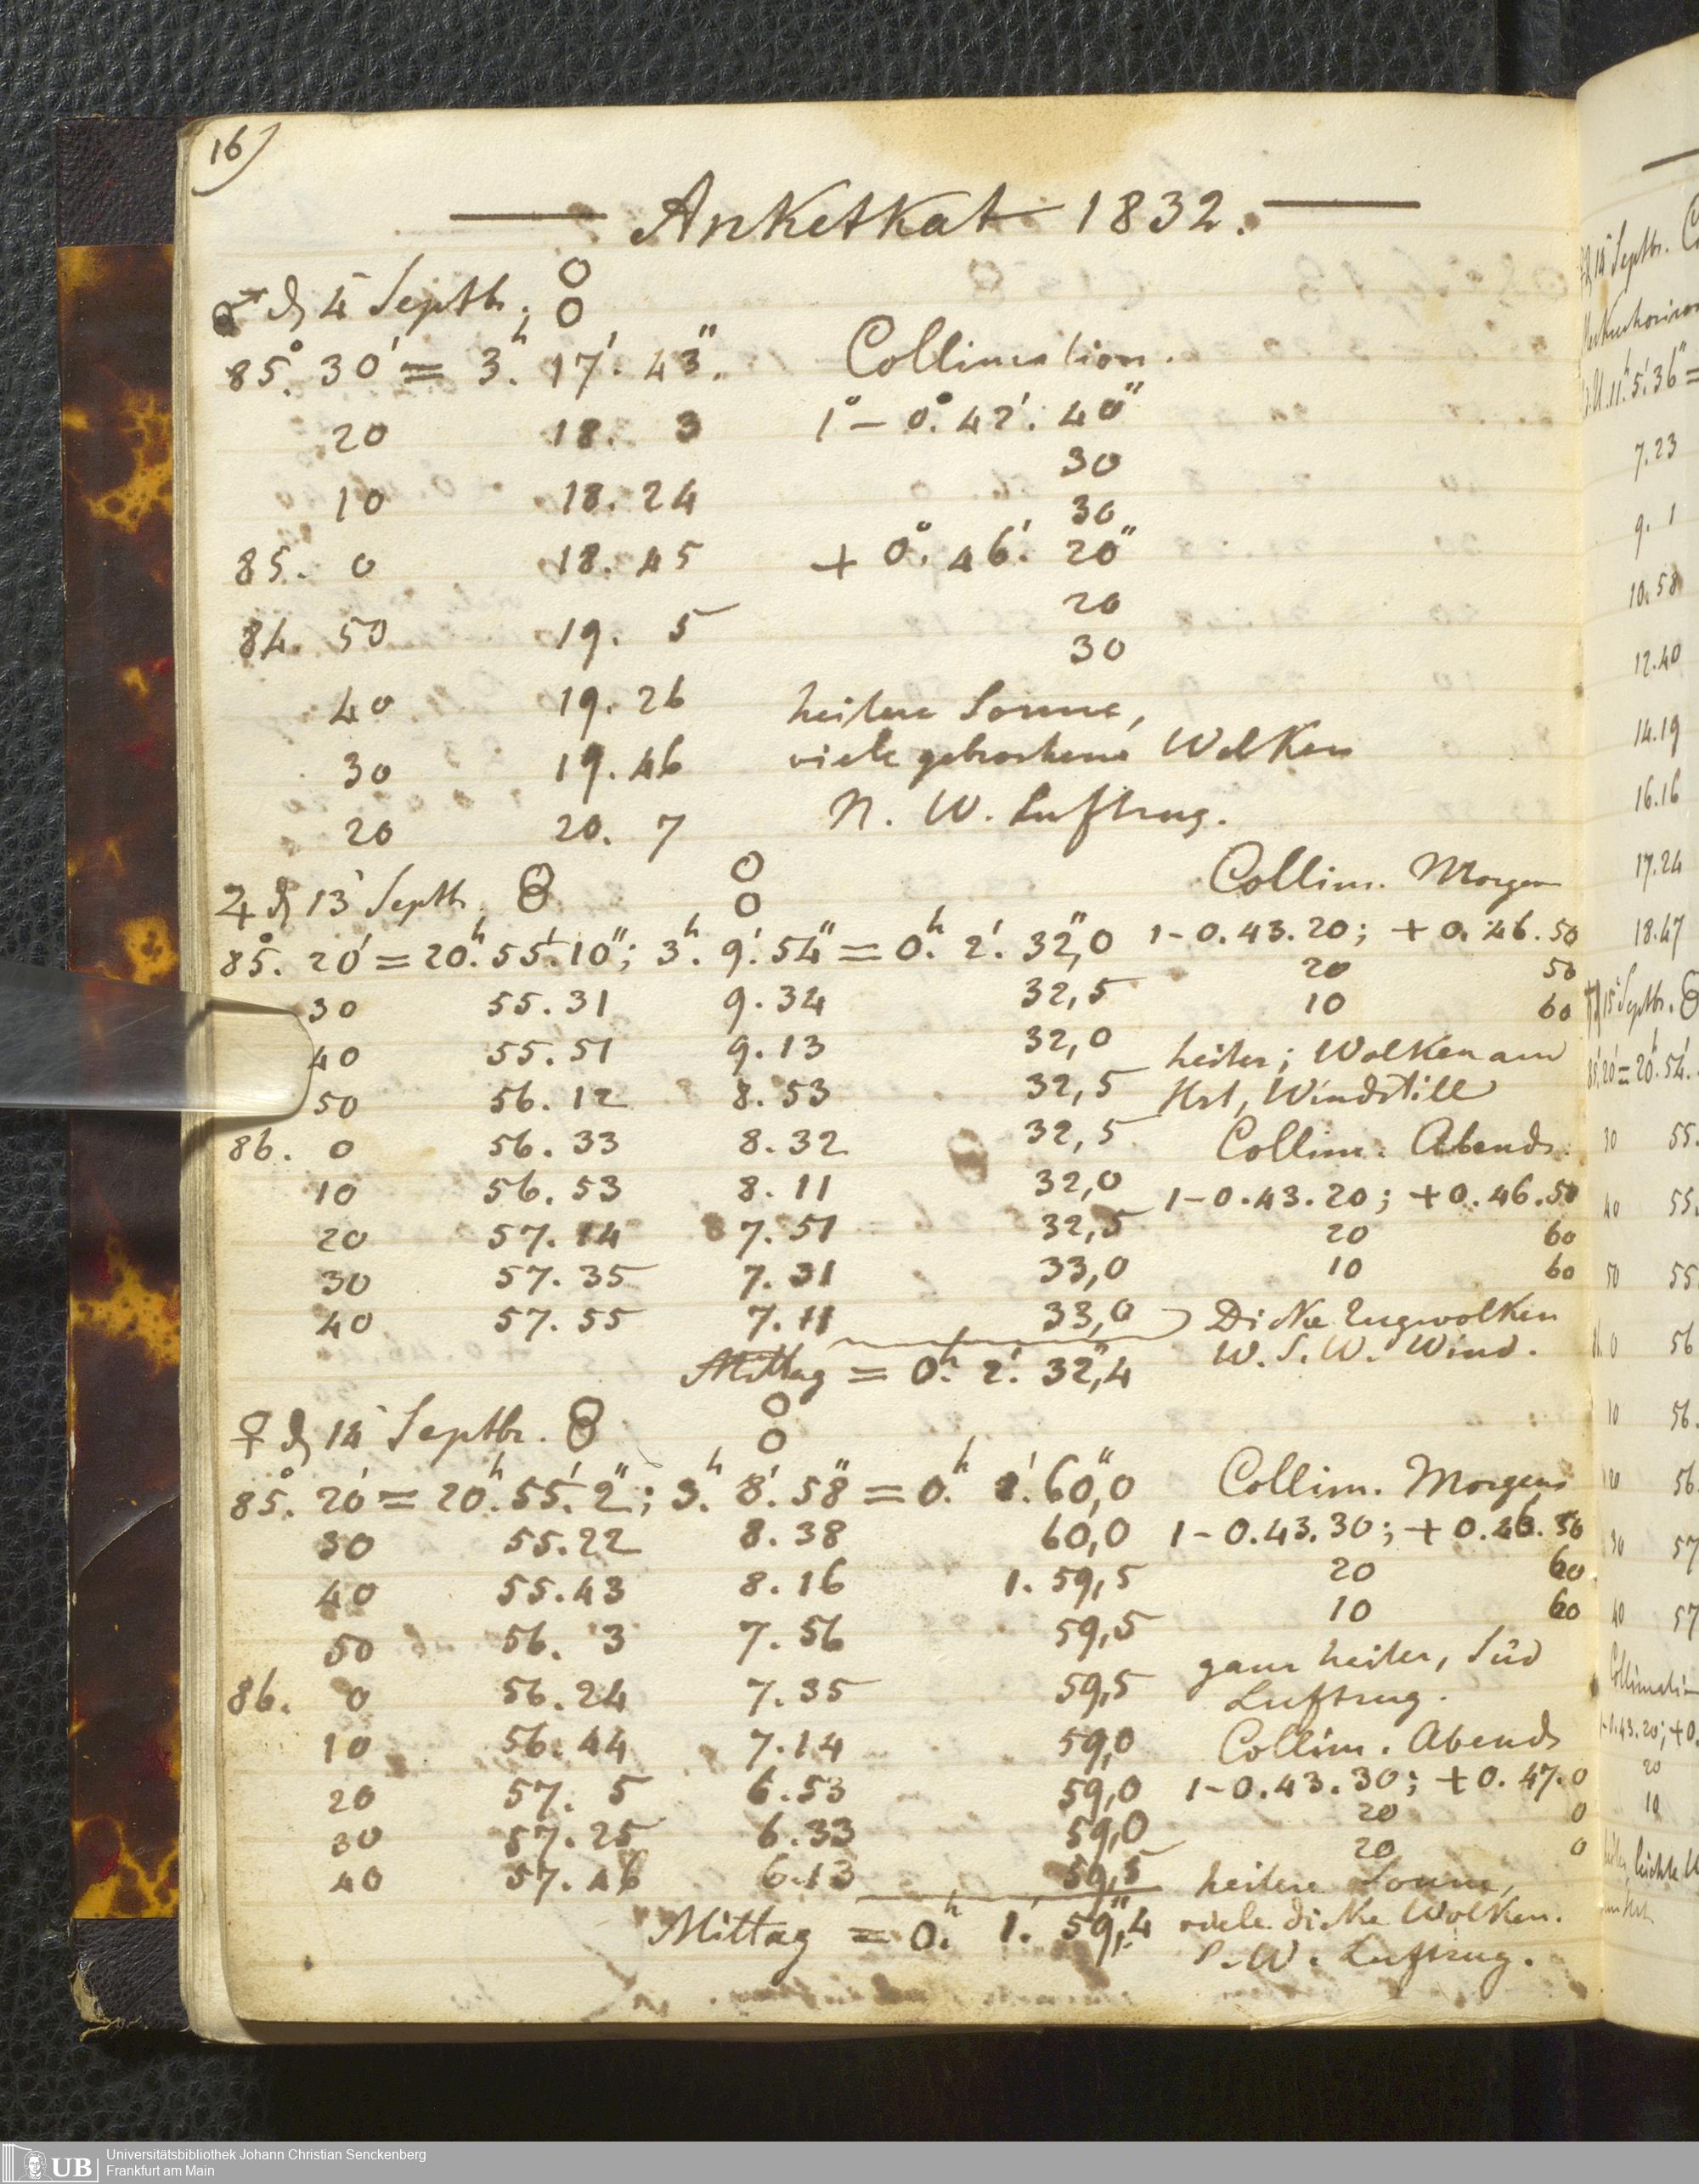 16)
Anketkat 1832.
♂ d 4 Septb.
85.° 30' = 3.h 17'. 43". Collimation.
20 18. 3 1° - 0.° 42'. 40"
30
10 18. 24
30
85. 0 18. 45 + 0.° 46'. 20"
20
84. 50 19. 5
30
40 19. 26 heitere Sonne,
30 19. 46 viele gebrochene Wolken
20 20. 7 N. W. Luftzug.
♃ d 13 Septb. Collim. Morgen
85.° 20' = 20.h 55'. 10"; 3.h 9'. 54" = 0.h 2'. 32",0 1-0.43.20; +0.46.50
20 50
30 55.31 9.34 32,5 10 60
40 55.51 9.13 32,0 heiter; Wolken am
50 56.12 8.53 32,5 Hrt, Windstill
86. 0 56.33 8.32 32,5 Collim. Abends.
10 56.53 8.11 32,0 1-0.43.20; +0.46.50
20 57.14 7.51 32,5 20 60
30 57.35 7.31 33,0 10 60
40 57.55 7.11 33,0 Dicke Zugwolken
Mittag = 0.h 2'. 32",4 W. S. W. Wind.
♀ d 14 Septbr.
85.° 20' = 20.h 55'. 2"; 3.h 8'. 58" = 0.h 1'. 60",0 Collim. Morgens
30 55.22 8.38 60,0 1-0.43.30; +0.46.50
40 55.43 8.16 1.59,5 20 60
10 60
50 56. 3 7.56 59,5
ganz heiter, Süd
86. 0 56.24 7.35 59,5 Luftzug.
10 56.44 7.14 59,0 Collim. Abends
20 57. 5 6.53 59,0 1-0.43.30; +0.47.0
30 57.25 6.33 59,0 20 0
20 0
40 57.46 6.13 59,5 heitere Sonne,
Mittag = 0.h 1'. 59",4 viele dicke Wolken.
S. W. Luftzug.
14 Septbr.
11.h 5'. 36" =
7.23
9. 1
10.58
12.40
14.19
16.16
17.24
18.47
15 Septbr.
85.20 = 20.h 54'.
30 55.
40 55.
50 55
0 56
10 56.
20 56.
30 57
40 57
1-0.43.20; +0.
20
10
leichte
UB Universitätsbibliothek Johann Christian Senckenberg
Frankfurt am Main